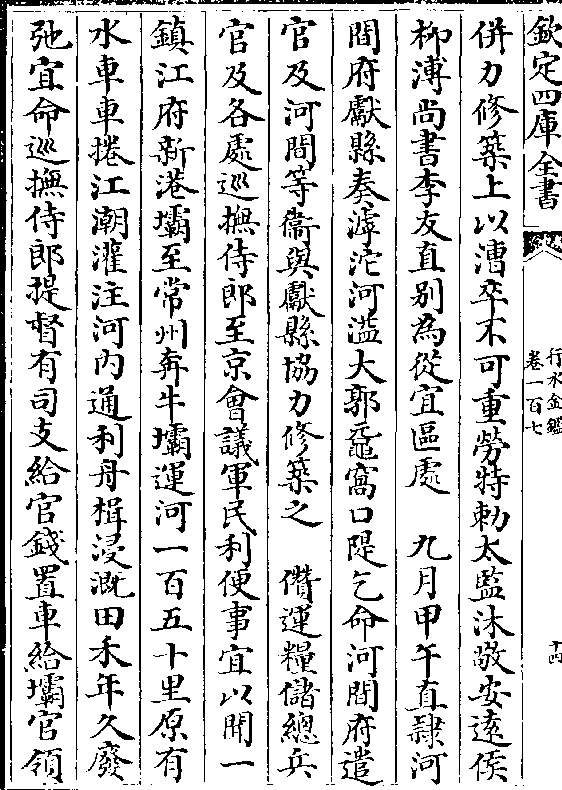 欽定四庫全書
行水金鑑
卷一百七
十四
併力修築上以漕卒不可重勞特勅太監沐敬安遠侯
柳溥尚書李友直别為從宜區處　九月甲午直隸河
間府獻縣奏滹沱河溢大郭黿窩口隄乞命河間府遣
官及河間等衞與獻縣協力修築之　儹運糧儲總兵
官及各處巡撫侍郎至京會議軍民利便事宜以聞一
鎮江府新港壩至常州奔牛壩運河一百五十里原有
水車車捲江潮灌注河内通利舟楫浸溉田禾年久廢
弛宜命巡撫侍郎提督有司支給官錢置車給壩官領